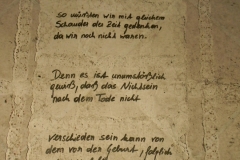 so müßten wir mit gleichem
Schauder der Zeit gedenken,
da wir noch nicht waren.
Denn es ist unumstößlich
gewiß, daß das Nichtsein
nach dem Tode nicht
verschieden sein kann von
dem vor der Geburt, folglich